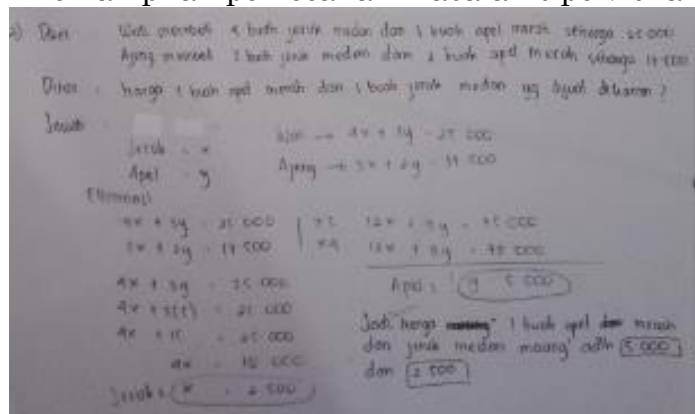 Diket : Wati membeli 4 buah jeruk medan dan 3 buah apel merah seharga 25 000
Ajeng membeli 3 buah jeruk medan dan 2 buah apel merah seharga 17 500
Ditan : harga 1 buah apel merah dan 1 buah jeruk medan yg
Jawab :
Jeruk = x Wati → 4x + 3y = 25 000
Apel = y Ajeng → 3x + 2y = 17 500
Eliminasi
4x + 3y = 25 000 | x3 12x + 9y = 75 000
3x + 2y = 17 500 | x4 12x + 8y = 70 000
4x + 3y = 25 000 Apel : y 5 000
4x + 3(5) = 25 000
4x + 15 = 25 000
4x = 10 000
Jeruk = x = 2 500
Jadi harga 1 buah apel merah
dan jeruk medan masing" adlh 5 000
dan 2 500